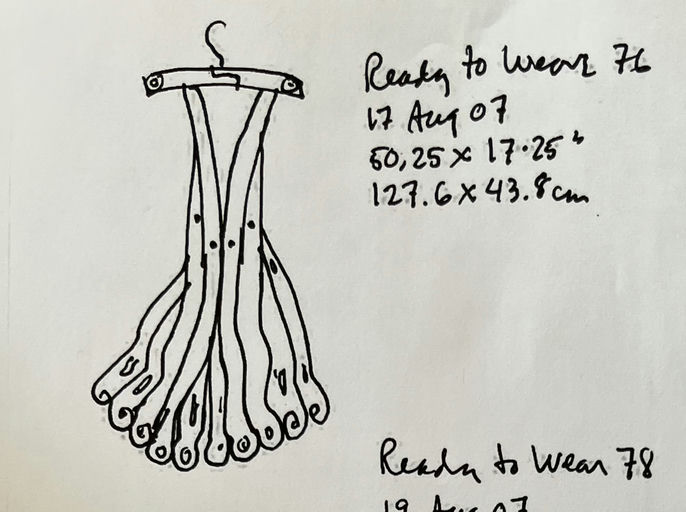 Ready to Wear 76
17 Aug 07
50,25 x 17.25"
127.6 x 43.8cm
Ready to Wear 78
19 Aug 07